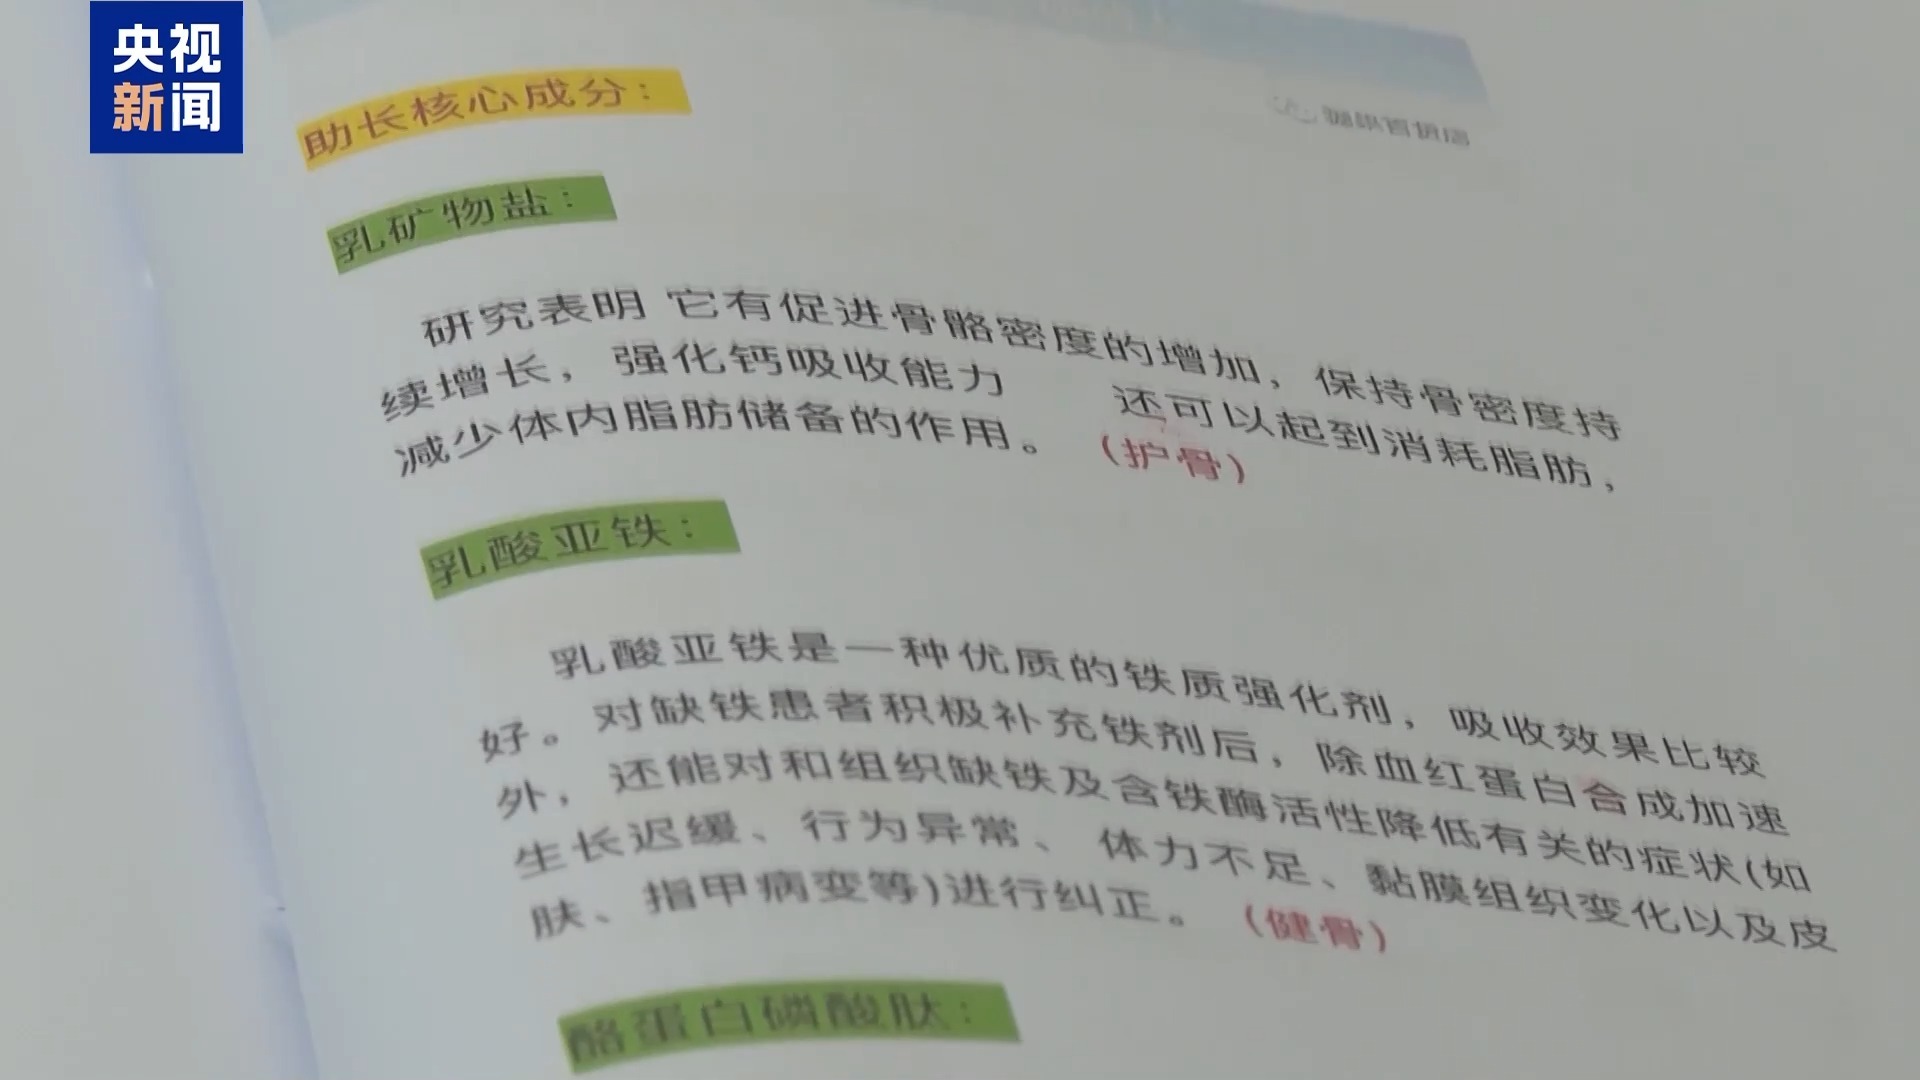 央视
新闻
助长核心成分：
乳矿物盐：
研究表明 它有促进骨骼密度的增加，保持骨密度持
续增长，强化钙吸收能力 还可以起到消耗脂肪，
减少体内脂肪储备的作用。（护骨）
乳酸亚铁：
乳酸亚铁是一种优质的铁质强化剂，吸收效果比较
好。对缺铁患者积极补充铁剂后，除血红蛋白合成加速
外，还能对和组织缺铁及含铁酶活性降低有关的症状(如
生长迟缓、行为异常、体力不足、黏膜组织变化以及皮
肤、指甲病变等)进行纠正。（健骨）
酪蛋白磷酸肽：